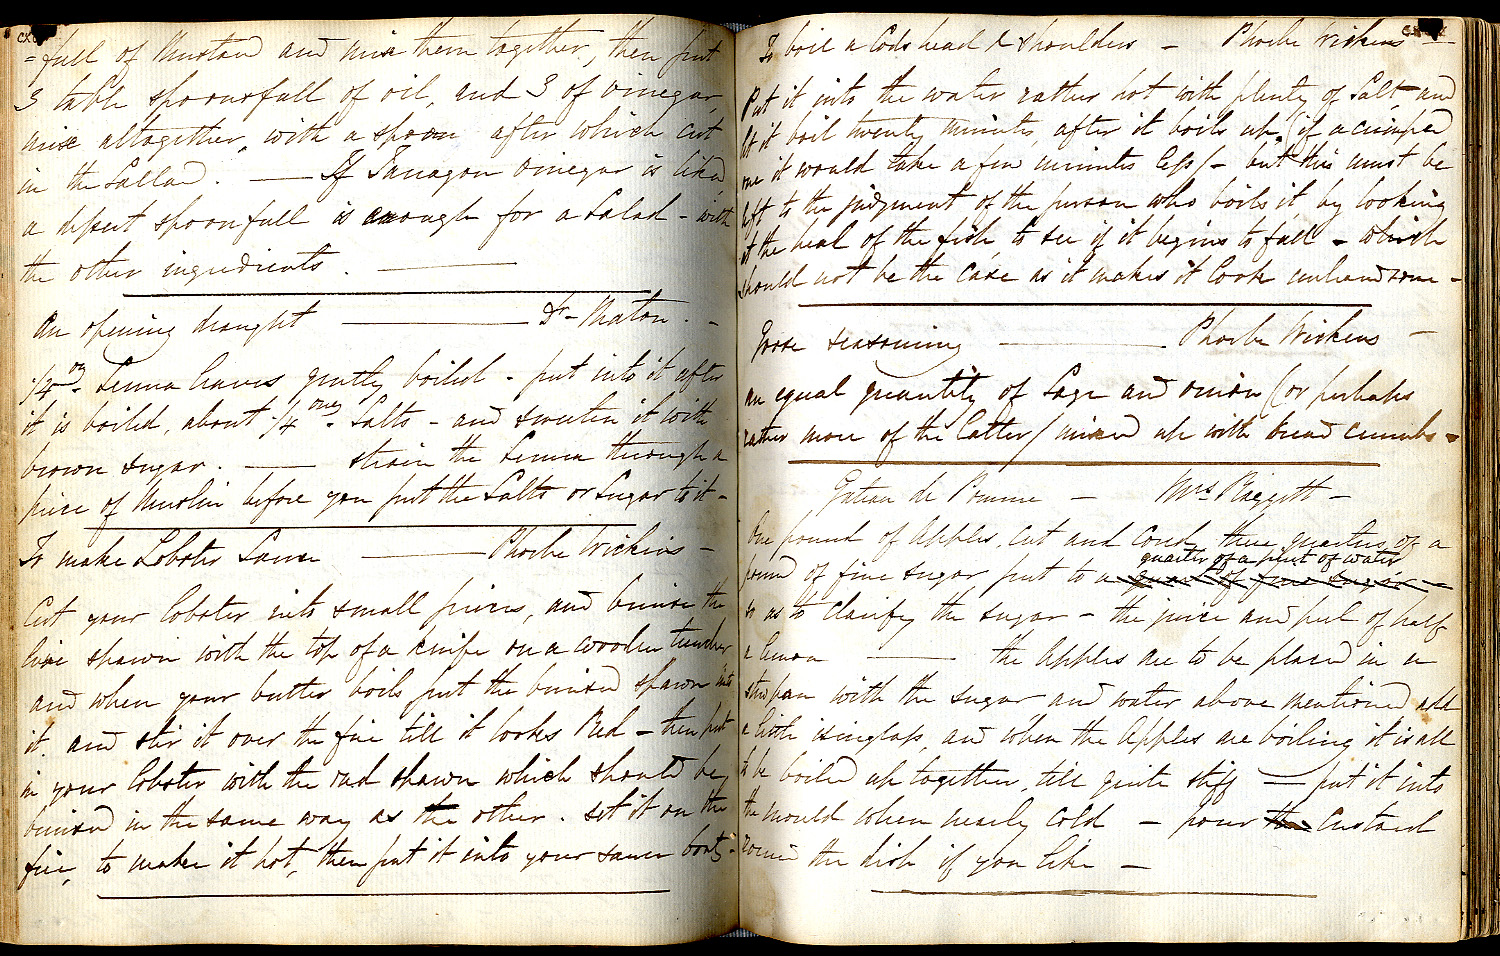 =full of Mustard and mix them together, then put
3 table spoonsfull of oil, and 3 of vinegar,
mix altogether, with a spoon after which cut
in the Sallad. — If Tarragon vinegar is liked
a desert spoonfull is enough for a Salad - with
the other ingredients. —
An opening draught — Dr Maton. -
1/4 oz Senna leaves gently boiled - put into it after
it is boiled, about 1/4 onz Salts - and sweeten it with
brown sugar. — strain the Senna through a
piece of Muslin before you put the Salts or Sugar to it -
To make Lobster Sauce — Phoebe Wickens -
Cut your lobster into small pieces, and bruise the
live spawn with the top of a knife on a wooden trencher
and when your butter boils put the bruised spawn into
it. and stir it over the fire till it looks Red - then put
in your lobster with the red spawn which should be
bruised in the same way as the other. set it on the
fire, to make it hot, then put it into your sauce boat -
To boil a Cods head & shoulders - Phoebe Wickens
Put it into the water rather hot with plenty of Salt, and
let it boil twenty minutes, after it boils up, (if a crimped
one it would take a few minutes less) - but this must be
left to the judgment of the person who boils it, by looking
at the head of the fish to see if it begins to fall - which
should not be the case as it makes it look unhandsome -
Goose seasoning — Phoebe Wickens -
an equal quantity of Sage and onion (or perhaps
rather more of the latter) mixed up with bread crumbs -
Gateau de Pomme - Mrs Biggott -
One pound of Apples, cut and cored, three quarters of a
quarter of a pint of water
pound of fine sugar put to a quart of fine sugar -
so as to clarify the sugar - the juice and peel of half
a lemon — the Apples are to be placed in a
stewpan with the sugar and water above mentioned add
a little isinglass, and when the Apples are boiling it is all
to be boiled up together, till quite stiff — put it into
the mould when nearly cold - pour the custard
round the dish if you like -